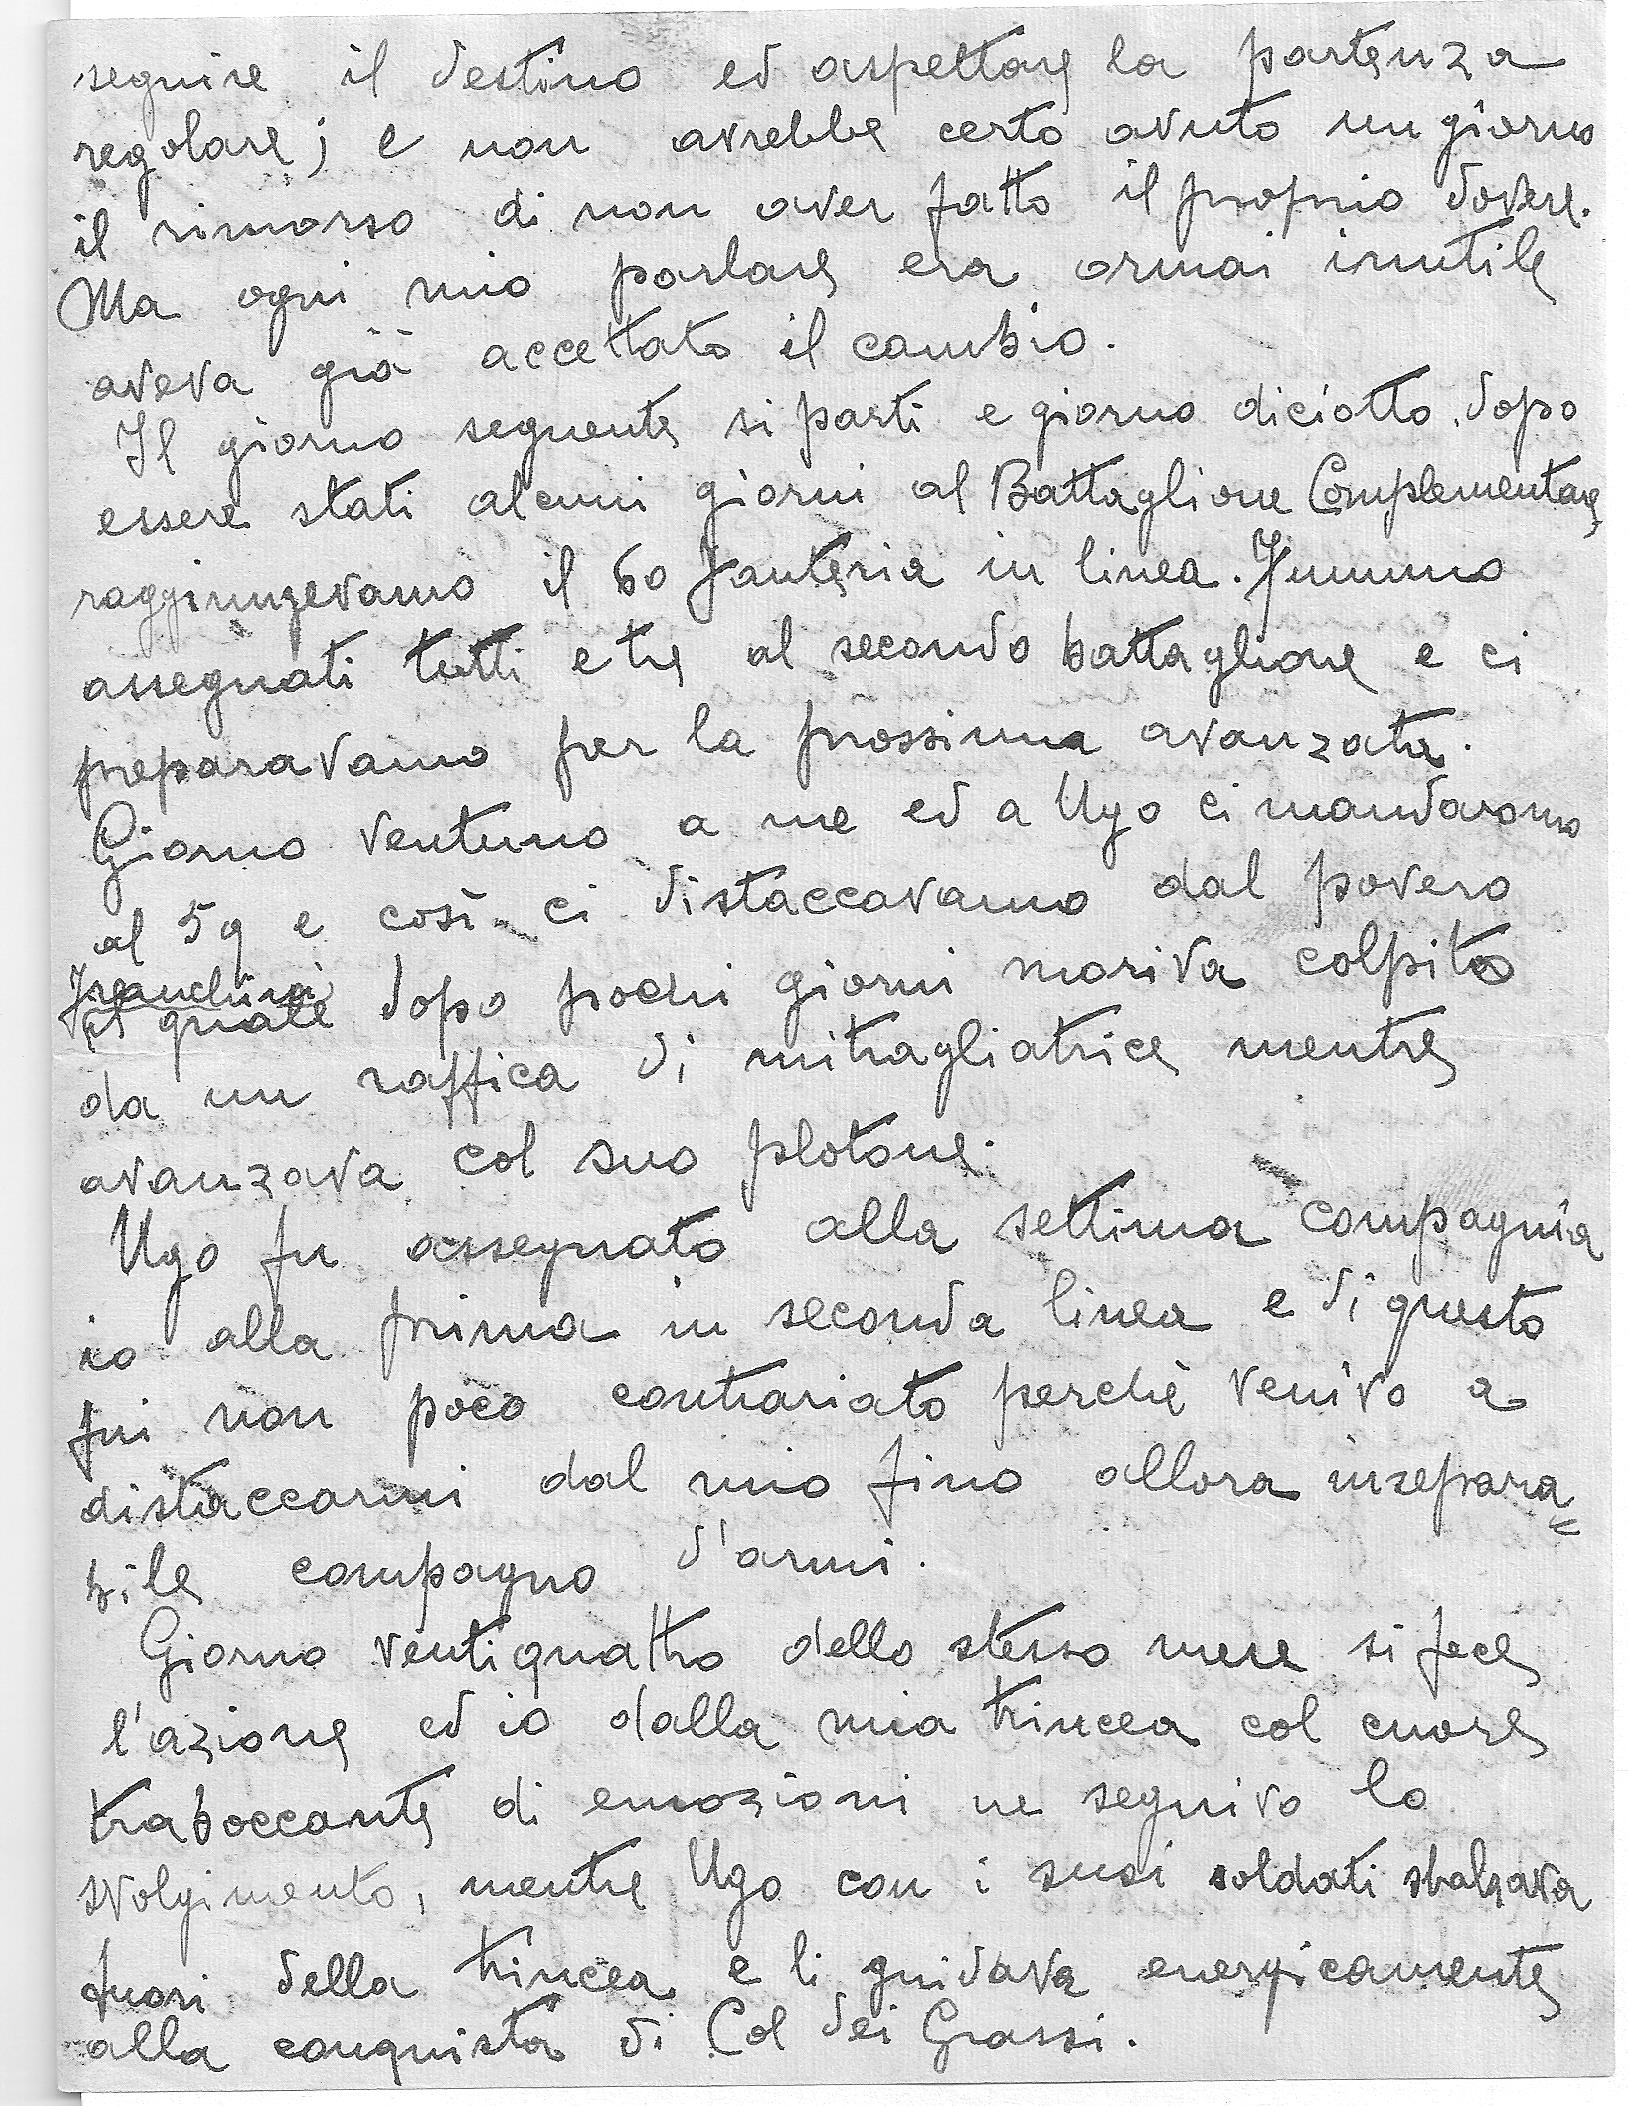 seguire il destino ed aspettare la partenza
regolare; e non avrebbe certo avuto un giorno
il rimorso di non aver fatto il proprio dovere.
Ma ogni mio parlare era ormai inutile
aveva già accettato il cambio.
Il giorno seguente si partì e giorno diciotto dopo
essere stati alcuni giorni al Battaglione Complementare
raggiungevamo il 60 Fanteria in linea. Fummo
assegnati tutti e tre al secondo battaglione e ci
preparavamo per la prossima avanzata.
Giorno ventuno a me ed a Ugo ci mandarono
al 59 e così ci distaccavamo dal povero
Franchini
il quale dopo pochi giorni moriva colpito
da un raffica di mitragliatrice mentre
avanzava col suo plotone.
Ugo fu assegnato alla settima compagnia
io alla prima in seconda linea e di questo
fui non poco contrariato perchè venivo a
distaccarmi dal mio fino allora insepara=
bile compagno d'armi.
Giorno ventiquattro dello stesso mese si fece
l'azione ed io dalla mia trincea col cuore
traboccante di emozioni ne seguivo lo
svolgimento, mentre Ugo con i suoi soldati sbalzava
fuori della trincea e li guidava energicamente
alla conquista di Col dei Grassi.